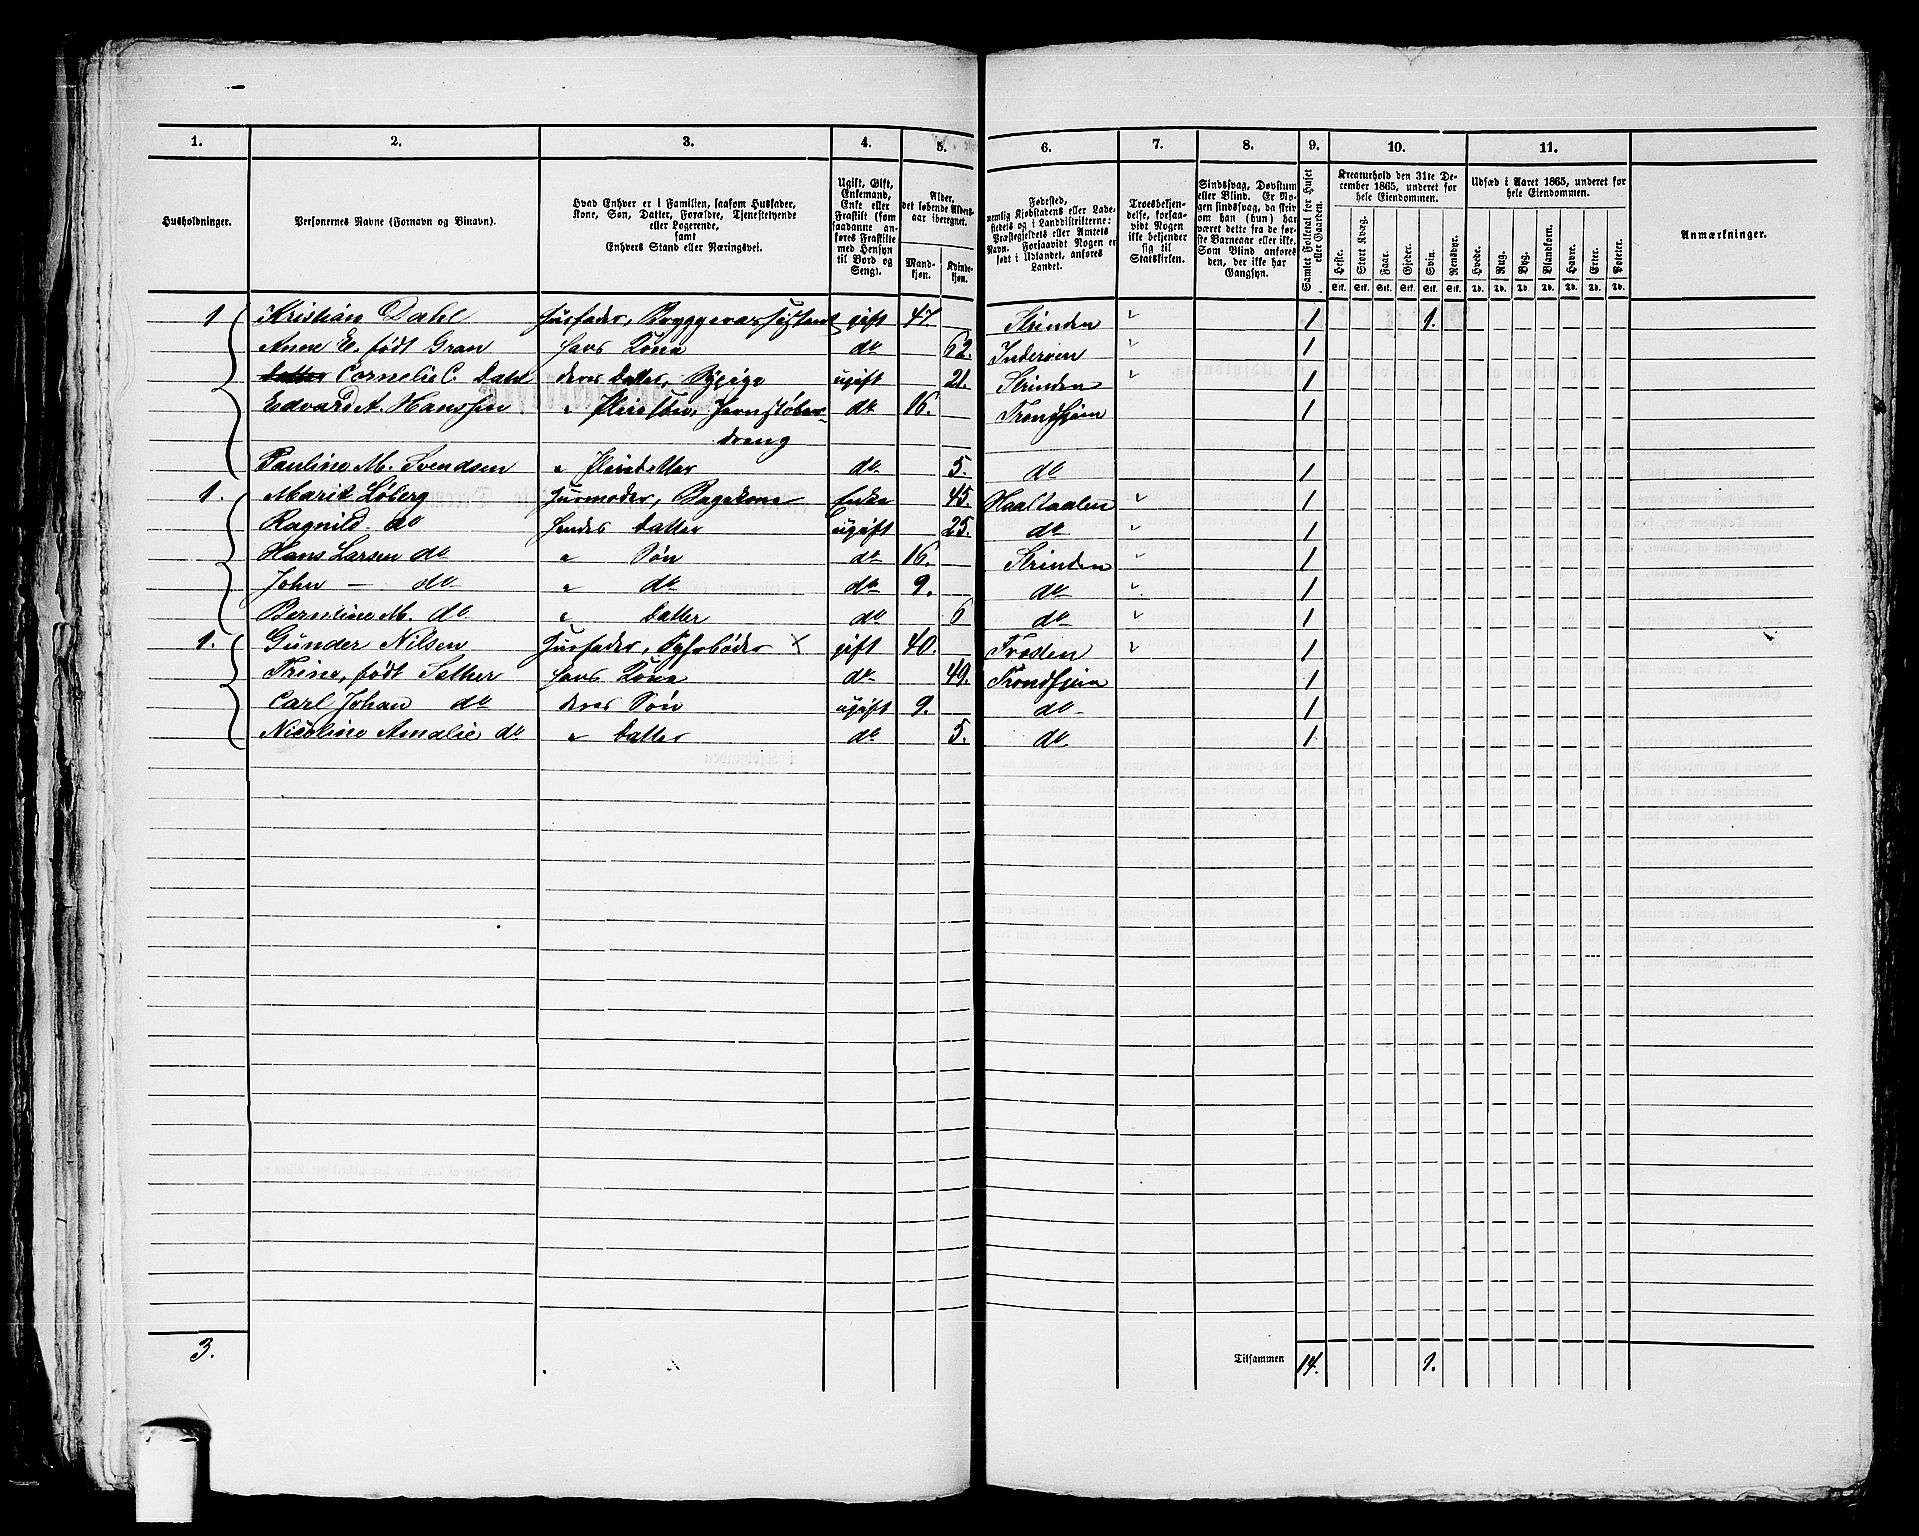 1. 2. 3. 4. 5. 6. 7. 8. 9. 10. 11.
Husholdninger.
Personernes Navne (Fornavn og Binavn).
Hvad Enhver er i Familien, saasom Husfader,
Kone, Søn, Datter, Forældre, Tjenestetyende
eller Logerende,
samt
Enhvers Stand eller Næringsvei.
Ugift, Gift,
Enkemand,
Enke eller
Fraskilt (som
saadanne an-
føres Fraskilte
med Hensyn
til Bord og
Seng).
Alder,
det løbende Alders-
aar iberegnet.
Mand-
kjøn.
Kvinde-
kjøn.
Fødested,
nemlig Kjøbstadens eller Lade-
stedets og i Landdistrikterne:
Præstegjeldets eller Amtets
Navn. Forsaavidt Nogen er
født i Udlandet, anføres
Landet.
Troesbekjen-
delse, forsaa-
vidt Nogen
ikke bekjender
sig til
Statskirken.
Sindssvag, Døvstum
eller Blind. Er No-
gen sindssvag, da skriv
om han (hun) har
været dette fra de før-
ste Barneaar eller ikke.
Som Blind anføres
den, der ikke har
Gangsyn.
Samlet Folketal for Huset
eller Gaarden.
Kreaturhold den 31te De-
cember 1865, underet for
hele Eiendommen.
Heste. Stort Kvæg. Faar. Gjeder. Svin. Rensdyr.
Stk. Stk. Stk. Stk. Stk. Stk.
Udsæd i Aaret 1865, underet for
hele Eiendommen.
Hvede. Rug. Byg. Blandkorn. Havre. Erter. Poteter.
Td. Td. Td. Td. Td. Td. Td.
Anmærkninger.
1 Kristian Dahl Husfader, Bryggeriassistent gift 47. Strinden 1 1.
Anne E. født Gran hans Kone do 62. Inderøen 1
Datter Cornelie C. Dahl deres Datter, Sypige ugift 21. Strinden 1
Edvard A. Hanssen " Pleiesøn, Jernstøber- do 16. Trondhjem 1
dreng
Pauline M. Svendsen " Pleiedatter do 5. do 1
1. Marit Løberg Husmoder, Bagekone Enke 45. Haaltaalen 1
Ragnild do hendes Datter ugift 25. do 1
Hans Larsen do " Søn do 16. Strinden 1
John — do " do do 9. do 1
Berntine M. do " Datter do 6 do 1
1. Gunder Nilsen Husfader, Fyrbøder × gift 40. Frosten 1
Trine, født Sather hans Kone do 49. Trondhjem 1
Carl Johan do deres Søn ugift 9. do 1
Nicoline Amalie do " Datter do 5. do 1
3. Tilsammen 14. 1.